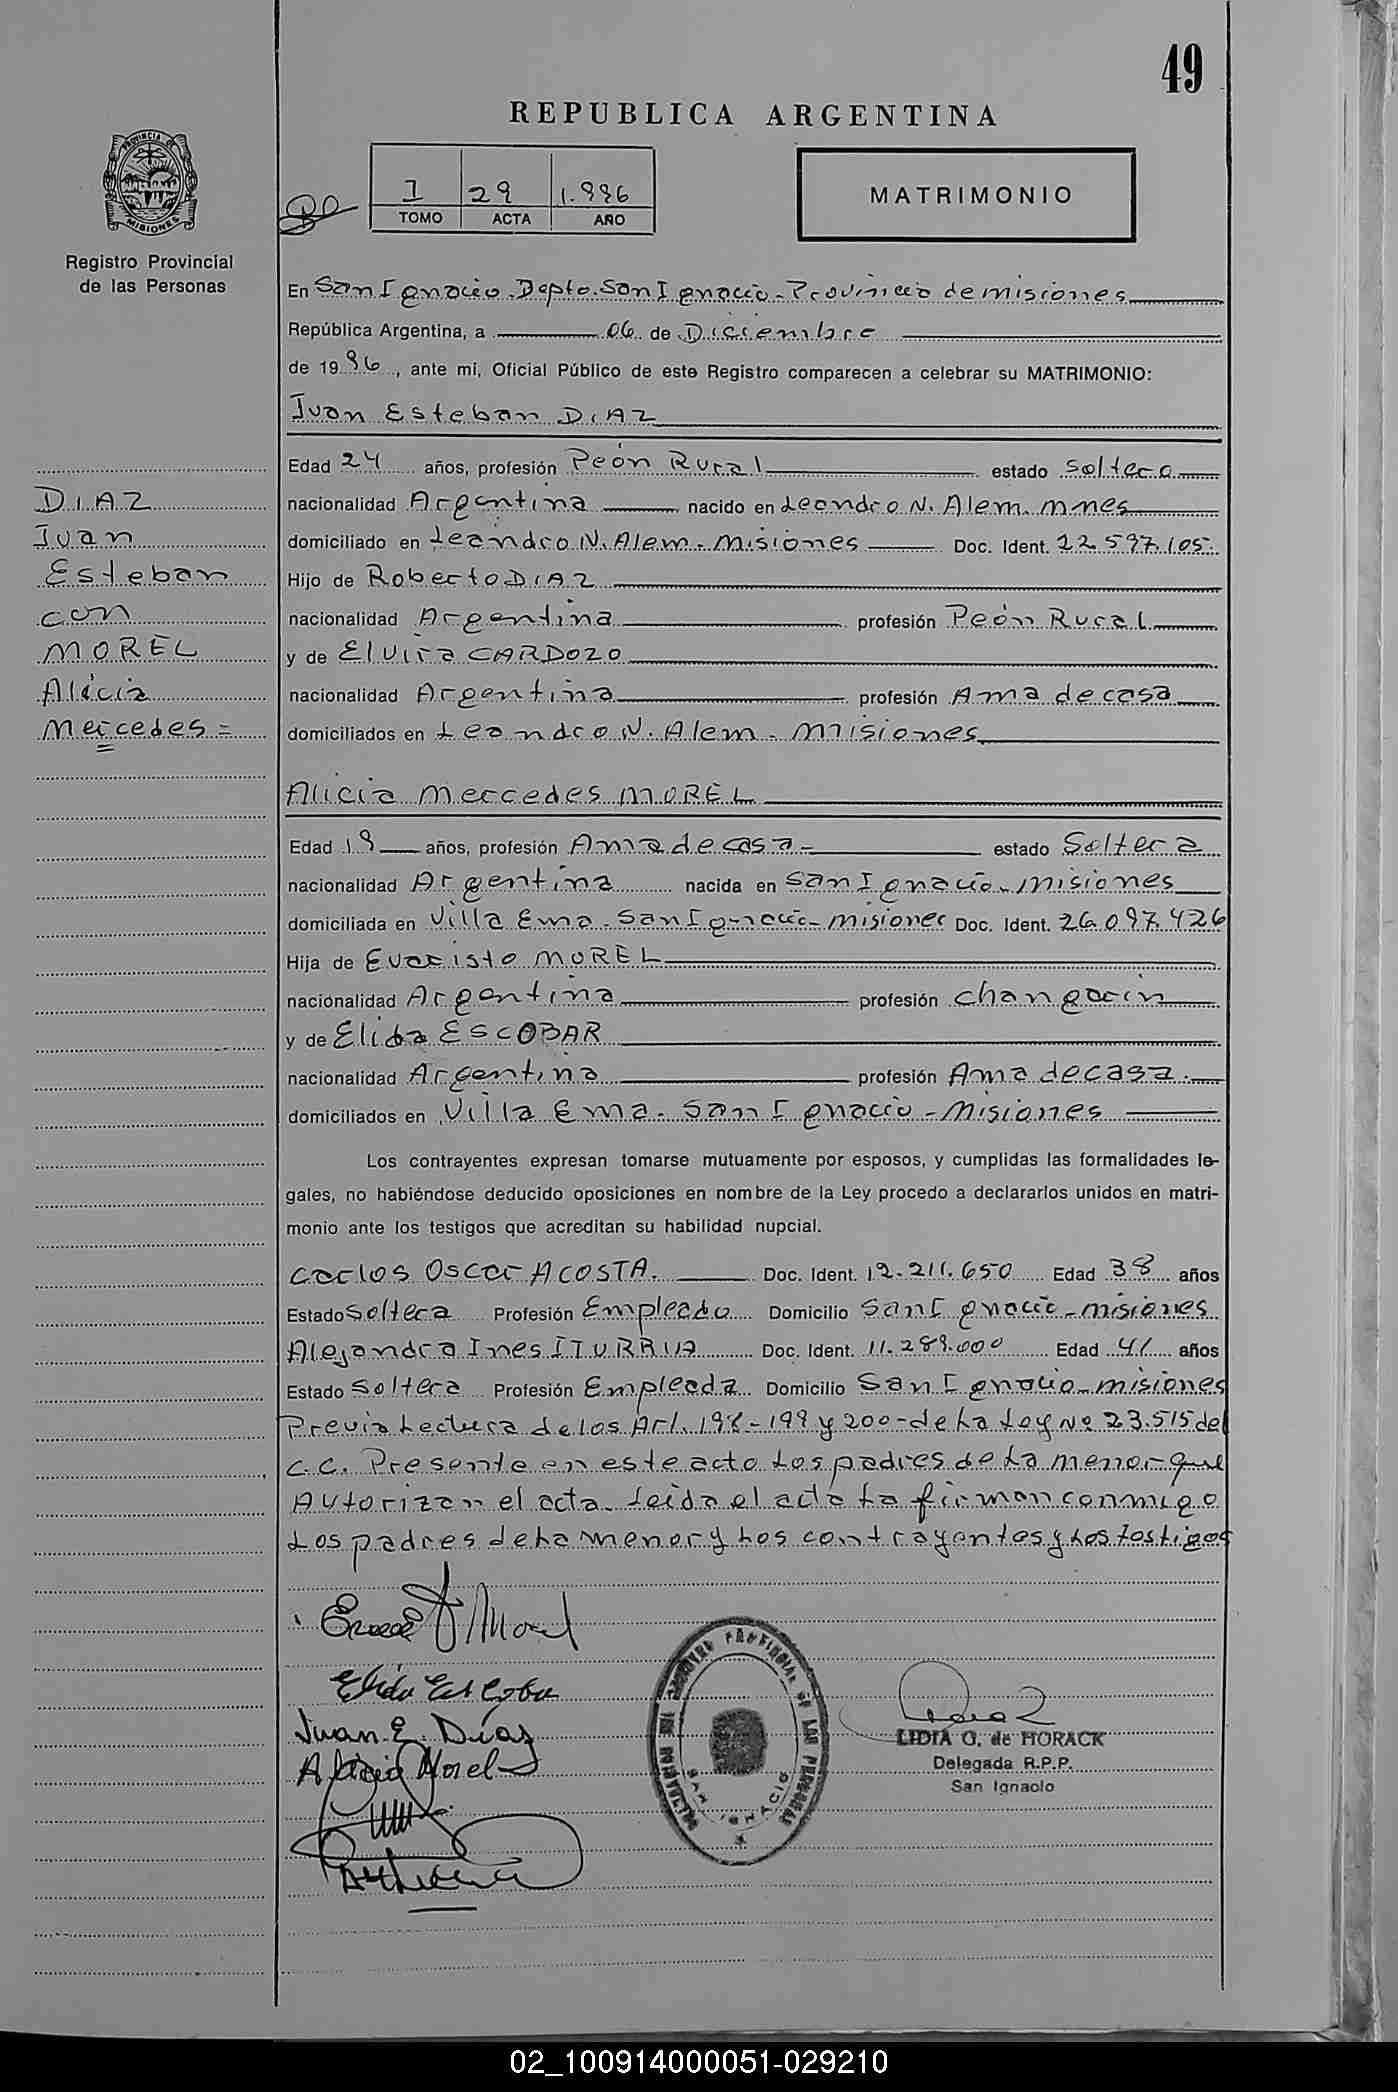 49
REPUBLICA ARGENTINA
PROVINCIA DE
MISIONES
Registro Provincial
de las Personas
I 29 1.996
TOMO ACTA AÑO
MATRIMONIO
En San Ignacio. Depto. San Ignacio - Provincia de misiones
República Argentina, a 06 de Diciembre
de 1996, ante mí, Oficial Público de este Registro comparecen a celebrar su MATRIMONIO:
Juan Esteban DIAZ
Edad 24 años, profesión Peón Rural estado Soltero
nacionalidad Argentina nacido en Leandro N. Alem. Mnes
domiciliado en Leandro N. Alem. Misiones Doc. Ident. 22.597.105.
Hijo de Roberto DIAZ
nacionalidad Argentina profesión Peón Rural
y de Elvira CARDOZO
nacionalidad Argentina profesión Ama de casa
domiciliados en Leandro N. Alem. Misiones
DIAZ
Juan
Esteban
con
MOREL
Alicia
Mercedes =
Alicia Mercedes MOREL
Edad 19 años, profesión Ama de casa - estado Soltera
nacionalidad Argentina nacida en San Ignacio - misiones
domiciliada en Villa Ema - San Ignacio - misiones Doc. Ident. 26.097.426
Hija de Evaristo MOREL
nacionalidad Argentina profesión changarin
y de Elida ESCOBAR
nacionalidad Argentina profesión Ama de casa.
domiciliados en Villa Ema. San Ignacio - Misiones
Los contrayentes expresan tomarse mutuamente por esposos, y cumplidas las formalidades le-
gales, no habiéndose deducido oposiciones en nombre de la Ley procedo a declararlos unidos en matri-
monio ante los testigos que acreditan su habilidad nupcial.
Carlos Oscar ACOSTA. Doc. Ident. 12.211.650 Edad 38 años
Estado Soltera Profesión Empleado Domicilio San Ignacio - misiones
Alejandra Ines ITURRUA Doc. Ident. 11.289.000 Edad 41 años
Estado Soltera Profesión Empleada Domicilio San Ignacio - misiones
Previa Lectura de los Art. 198 - 199 y 200 - de La Ley Nº 23.515 del
C.C. Presente en este acto Los padres de La menor que
Autorizan el acta. Leida el acta La firman conmigo
Los padres de La menor y Los contrayentes y Los testigos
Morel
Elida Escobar
Juan E. Díaz
Alicia Morel
LIDIA G. de HORACK
Delegada R.P.P.
San Ignacio
DELEGACION DEL REGISTRO PROVINCIAL DE LAS PERSONAS
SAN IGNACIO
02_100914000051-029210